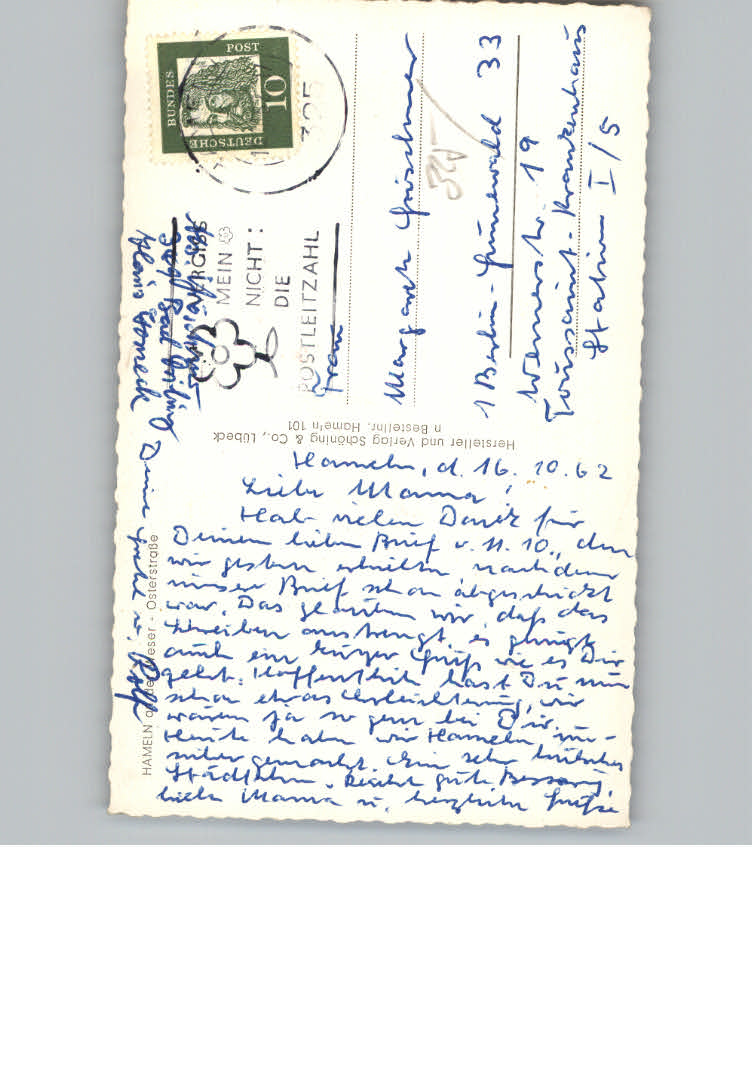 DEUTSCHE
BUNDES
POST
10
325
VERGISS
MEIN
NICHT:
DIE
POSTLEITZAHL
Frau
Margarete
1 Berlin-Grunewald 33
Wernerstr. 19
Toussaint-Krankenhaus
Station I/5
Hersteller und Verlag Schöning & Co., Lübeck
n Bestellnr. Hame'n 101
HAMELN an der Weser - Osterstraße
Hameln, d. 16. 10. 62
Liebe Mama!
Hab vielen Dank für
Deinen lieben Brief v. 11. 10., den
wir gestern erhielten, nachdem
unser Brief schon abgeschickt
war. Das glauben wir, daß das
Schreiben anstrengt, es genügt
auch ein kurzer Gruß wie es Dir
geht. Hoffentlich hast Du nun
schon etwas Erleichterung, wir
wären ja so gern bei Dir.
Heute haben wir Hameln un-
sicher gemacht. Ein sehr hübsches
Städtchen. Recht gute Besserung,
liebe Mama u. herzliche Grüße
Deine u. Rolf
Haus